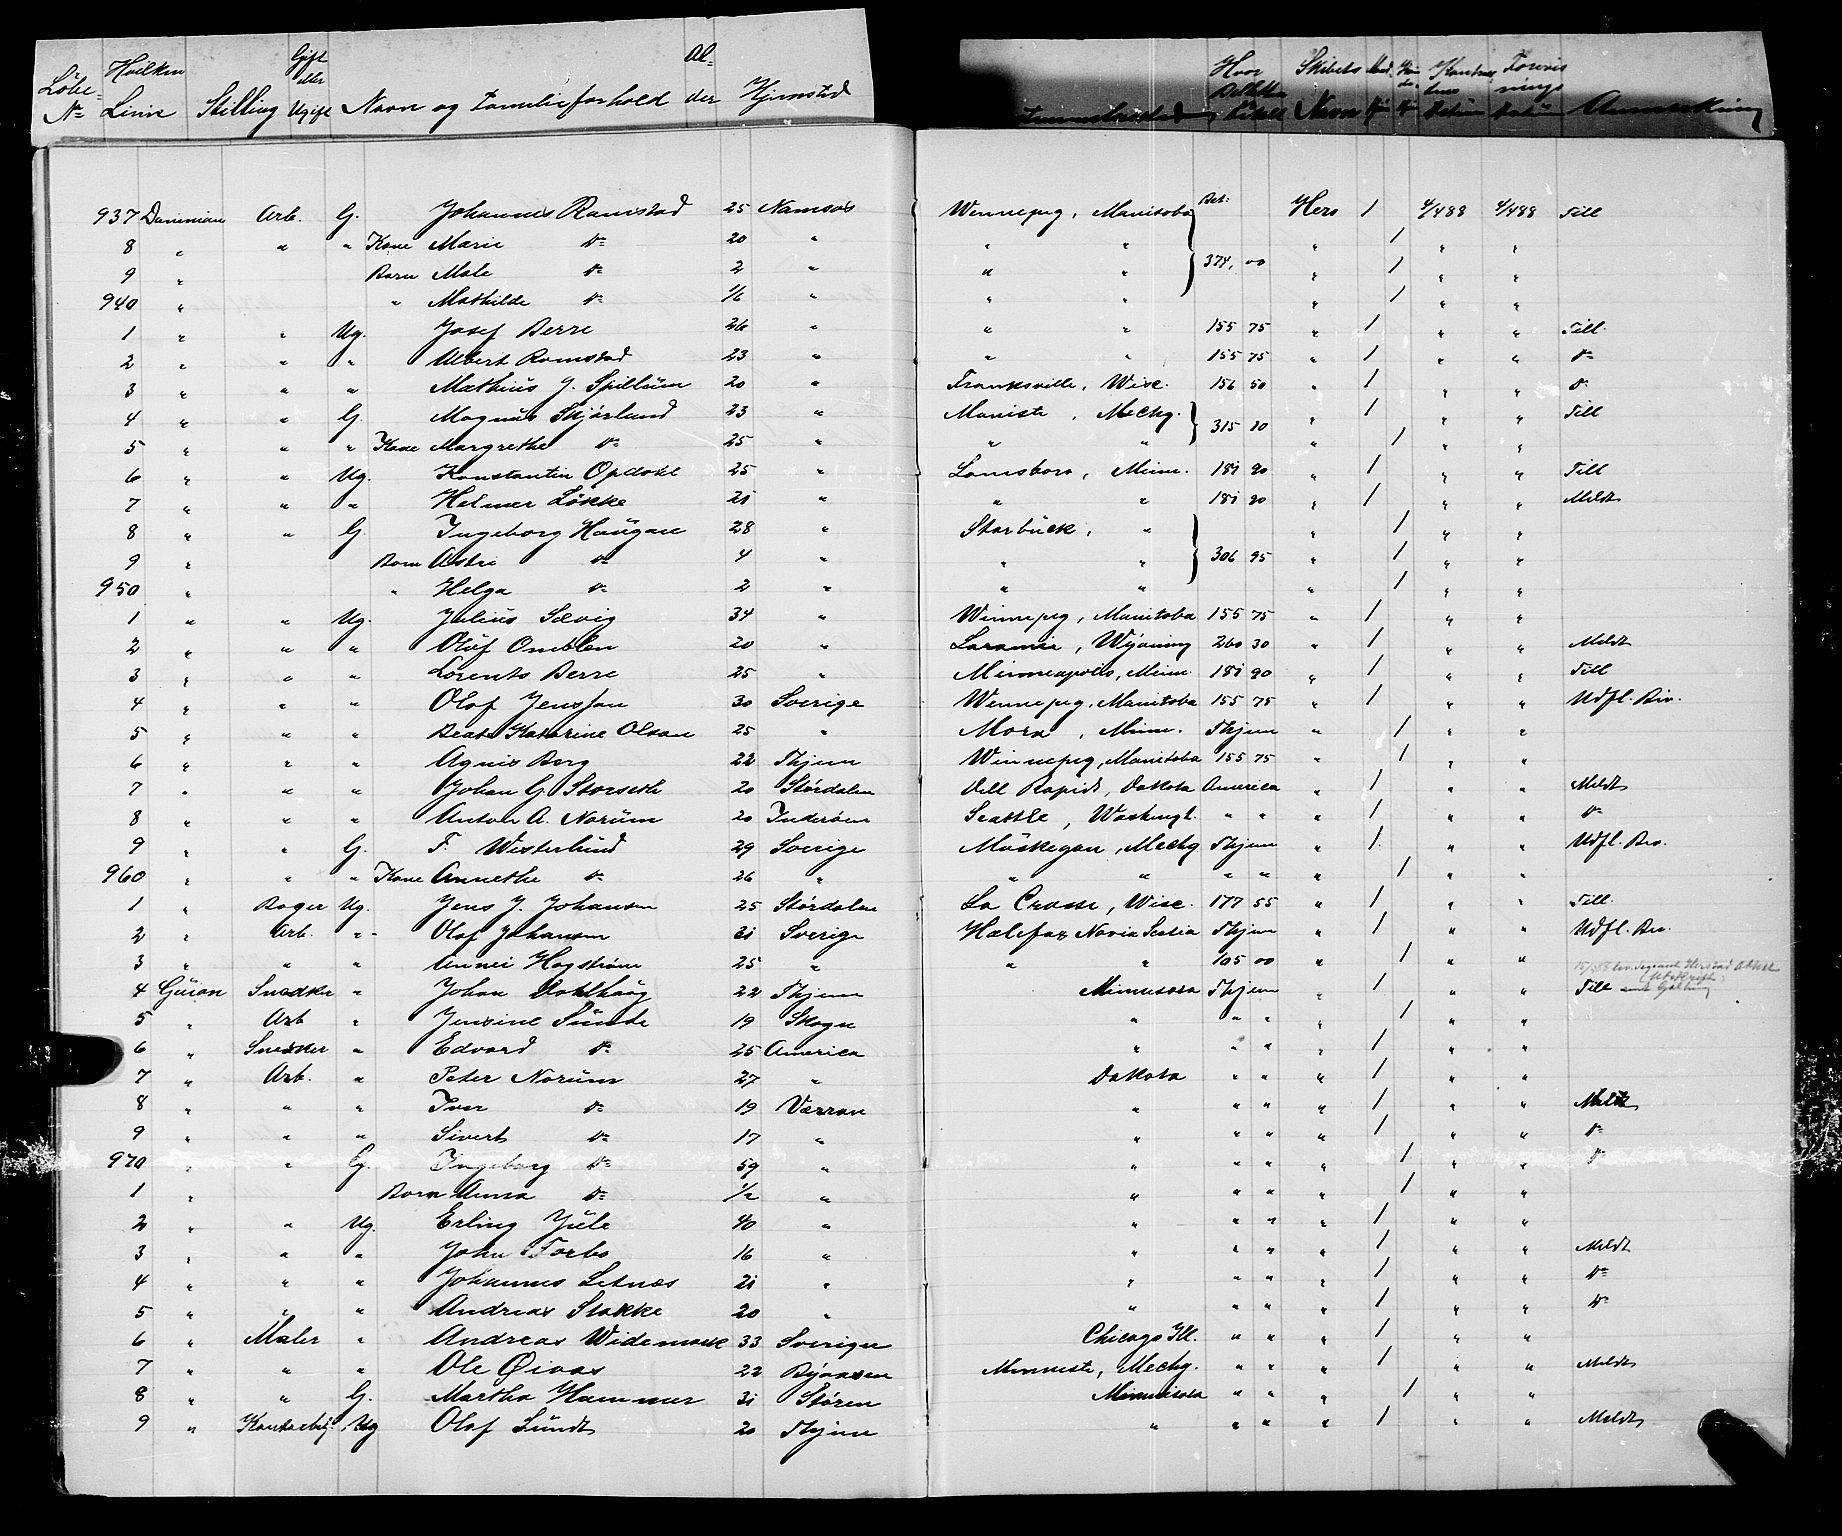 Löbe- Nr. Hvilken Linie Stilling Gift eller Ugift Navn og Familieforhold Al- der Hjemsted Hvor Billetten Skibets Navn Anmærkning
937 Dominion Arb. G. Johannes Ramstad 25 Namsos Winnepeg, Manitoba Bet: Hero 1 4/4 88 4/4 88 Till
8 " " " Kone Marie Do 20 " " " " 1 " "
9 " Barn Male Do 2 " " " 374,00 " 1 " "
940 " " Mathilde Do 1/6 " " " " 1 " "
1 " " Ug. Josef Berre 26 " " " 155 75 " 1 " " Till.
2 " " " Albert Ramstad 23 " " " 155 75 " 1 " " Do
3 " " " Mathius J. Spillum 20 " Franksville, Wisc. 156 50 " 1 " " Do
4 " " G. Magnus Skjørland 23 " Maniste, Mechg. " 1 " " Till
5 " " " Kone Margrethe Do 25 " " " 315 80 " 1 " "
6 " " Ug. Konstantin Opdahl 25 " Lanesboro, Minn. 181 90 " 1 " " Till
7 " " " Helmer Løkke 21 " " " 181 90 " 1 " " Meldt
8 " " G. Ingeborg Haugan 28 " Starbuck, " " 1 " "
9 " Barn Astri Do 4 " " " 306 95 " 1 " "
950 " " Helga Do 2 " " " " 1 " "
1 " " Ug. Julius Sævig 34 " Winnepeg, Manitoba 155 75 " 1 " "
2 " " " Oluf Omblen 20 " Laramia, Wyoming 260 30 " 1 " " Meldt
3 " " " Lorents Berre 25 " Minneapolis, Minn. 181 90 " 1 " " Till
4 " " " Olof Jensson 30 Sverige Winnepeg, Manitoba 155 75 " 1 " " Udfl. Bev.
5 " " " Beate Katarine Olsson 25 " Mora, Minn. Thjem " 1 " "
6 " " " Agnes Berg 22 Thjem Winnepeg, Manitoba 155 75 " 1 " "
7 " " " Johan G. Storseth 20 Størdalen Dell Rapids, Dakota America " 1 " " Meldt
8 " " " Anton A. Norum 20 Inderøen Seattle, Washingt. " " " 1 " " Do
9 " " G. F. Westerlund 29 Sverige Muskegan, Mechg Thjem " 1 " " Udfl. Bev.
960 " " " Kone Annethe Do 26 " " " " " " 1 " "
1 " Bager Ug. Jens J. Johansen 25 Størdalen La Crosse, Wisc. 177 55 " 1 " " Till.
2 " Arb. " Olof Johanson 31 Sverige Halefax Novia Scotia Thjem " 1 " " Udfl. Bev.
3 " " " Annei Hagstrøm 25 " " " 105 00 " 1 " "
4 Guion Snedker " Johan Dahlhaug 22 Thjem Minnesota Thjem " 1 " " Till
5 " Arb " Jensine Sunde 19 Skogn " " " " 1 " "
6 " Snedker " Edvard Do 25 America " " " " 1 " "
7 " Arb. " Peter Norum 27 " Dakota " " " 1 " "
8 " " " Iver Do 19 Værran " " " " 1 " " Meldt
9 " " " Sivert Do 17 " " " " " 1 " " Do
970 " " G. Ingeborg Do 59 " " " " " 1 " " Do
1 " Barn Anna Do 1/2 " " " " " 1 " "
2 " " Ug. Erling Jule 40 " " " " " 1 " "
3 " " " John Forbo 16 " " " " " 1 " " Meldt
4 " " " Johannes Letnæs 21 " " " " " 1 " " Do
5 " " " Andreas Stokke 20 " " " " " 1 " " Do
6 " Maler " Andreas Widemark 33 Sverige Chicago Ill. " " " 1 " "
7 " " " Ole Øiaas 22 Byaasen Menneste, Mechg. " " " 1 " " Meldt
8 " " G. Martha Hammer 31 Støren Minnesota " " " 1 " "
9 " " Ug Olaf Lundt 20 Thjem " " " " 1 " " Meldt